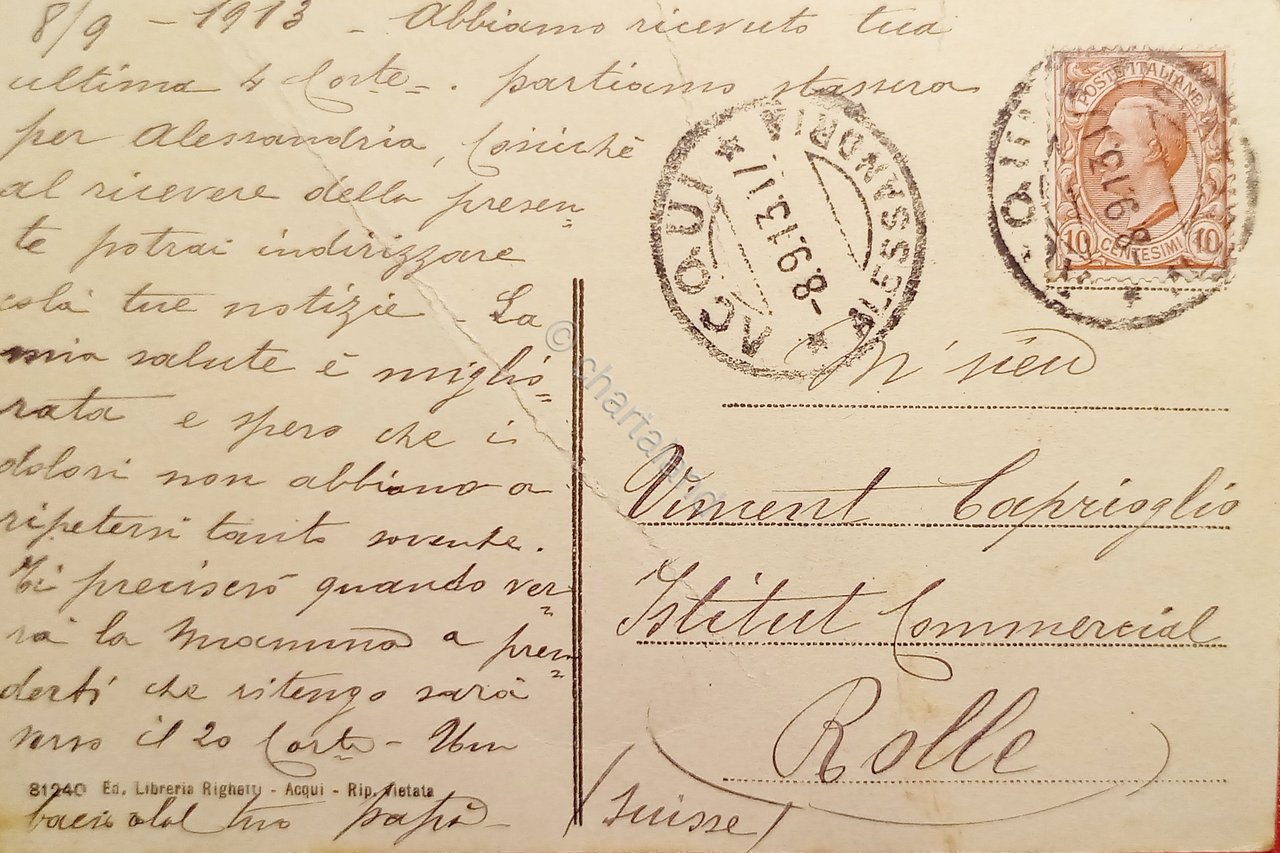 8/9 - 1913 - Abbiamo ricevuto tua
ultima 4 Corte=. partiamo stassera
per Alessandria, Cosicchè
al ricevere della presen=
te potrai indirizzare
colà tue notizie - La
mia salute è miglio=
rata e spero che i
dolori non abbiano a
ripetersi tanto sovente.
Ti preciserò quando ver=
rà la Mamma a pren=
derti che ritengo sarà
verso il 20 Corte - Un
bacio dal tuo papà -
81240 Ed. Libreria Righetti - Acqui - Rip. Vietata
POSTE ITALIANE
10 CENTESIMI 10
ACQUI * ALESSANDRIA *
-8.9.13.17
8.9.13.17
M'sieu
Vincent Caprioglio
Istitut Commercial
Rolle
(Suisse)
© chartaland